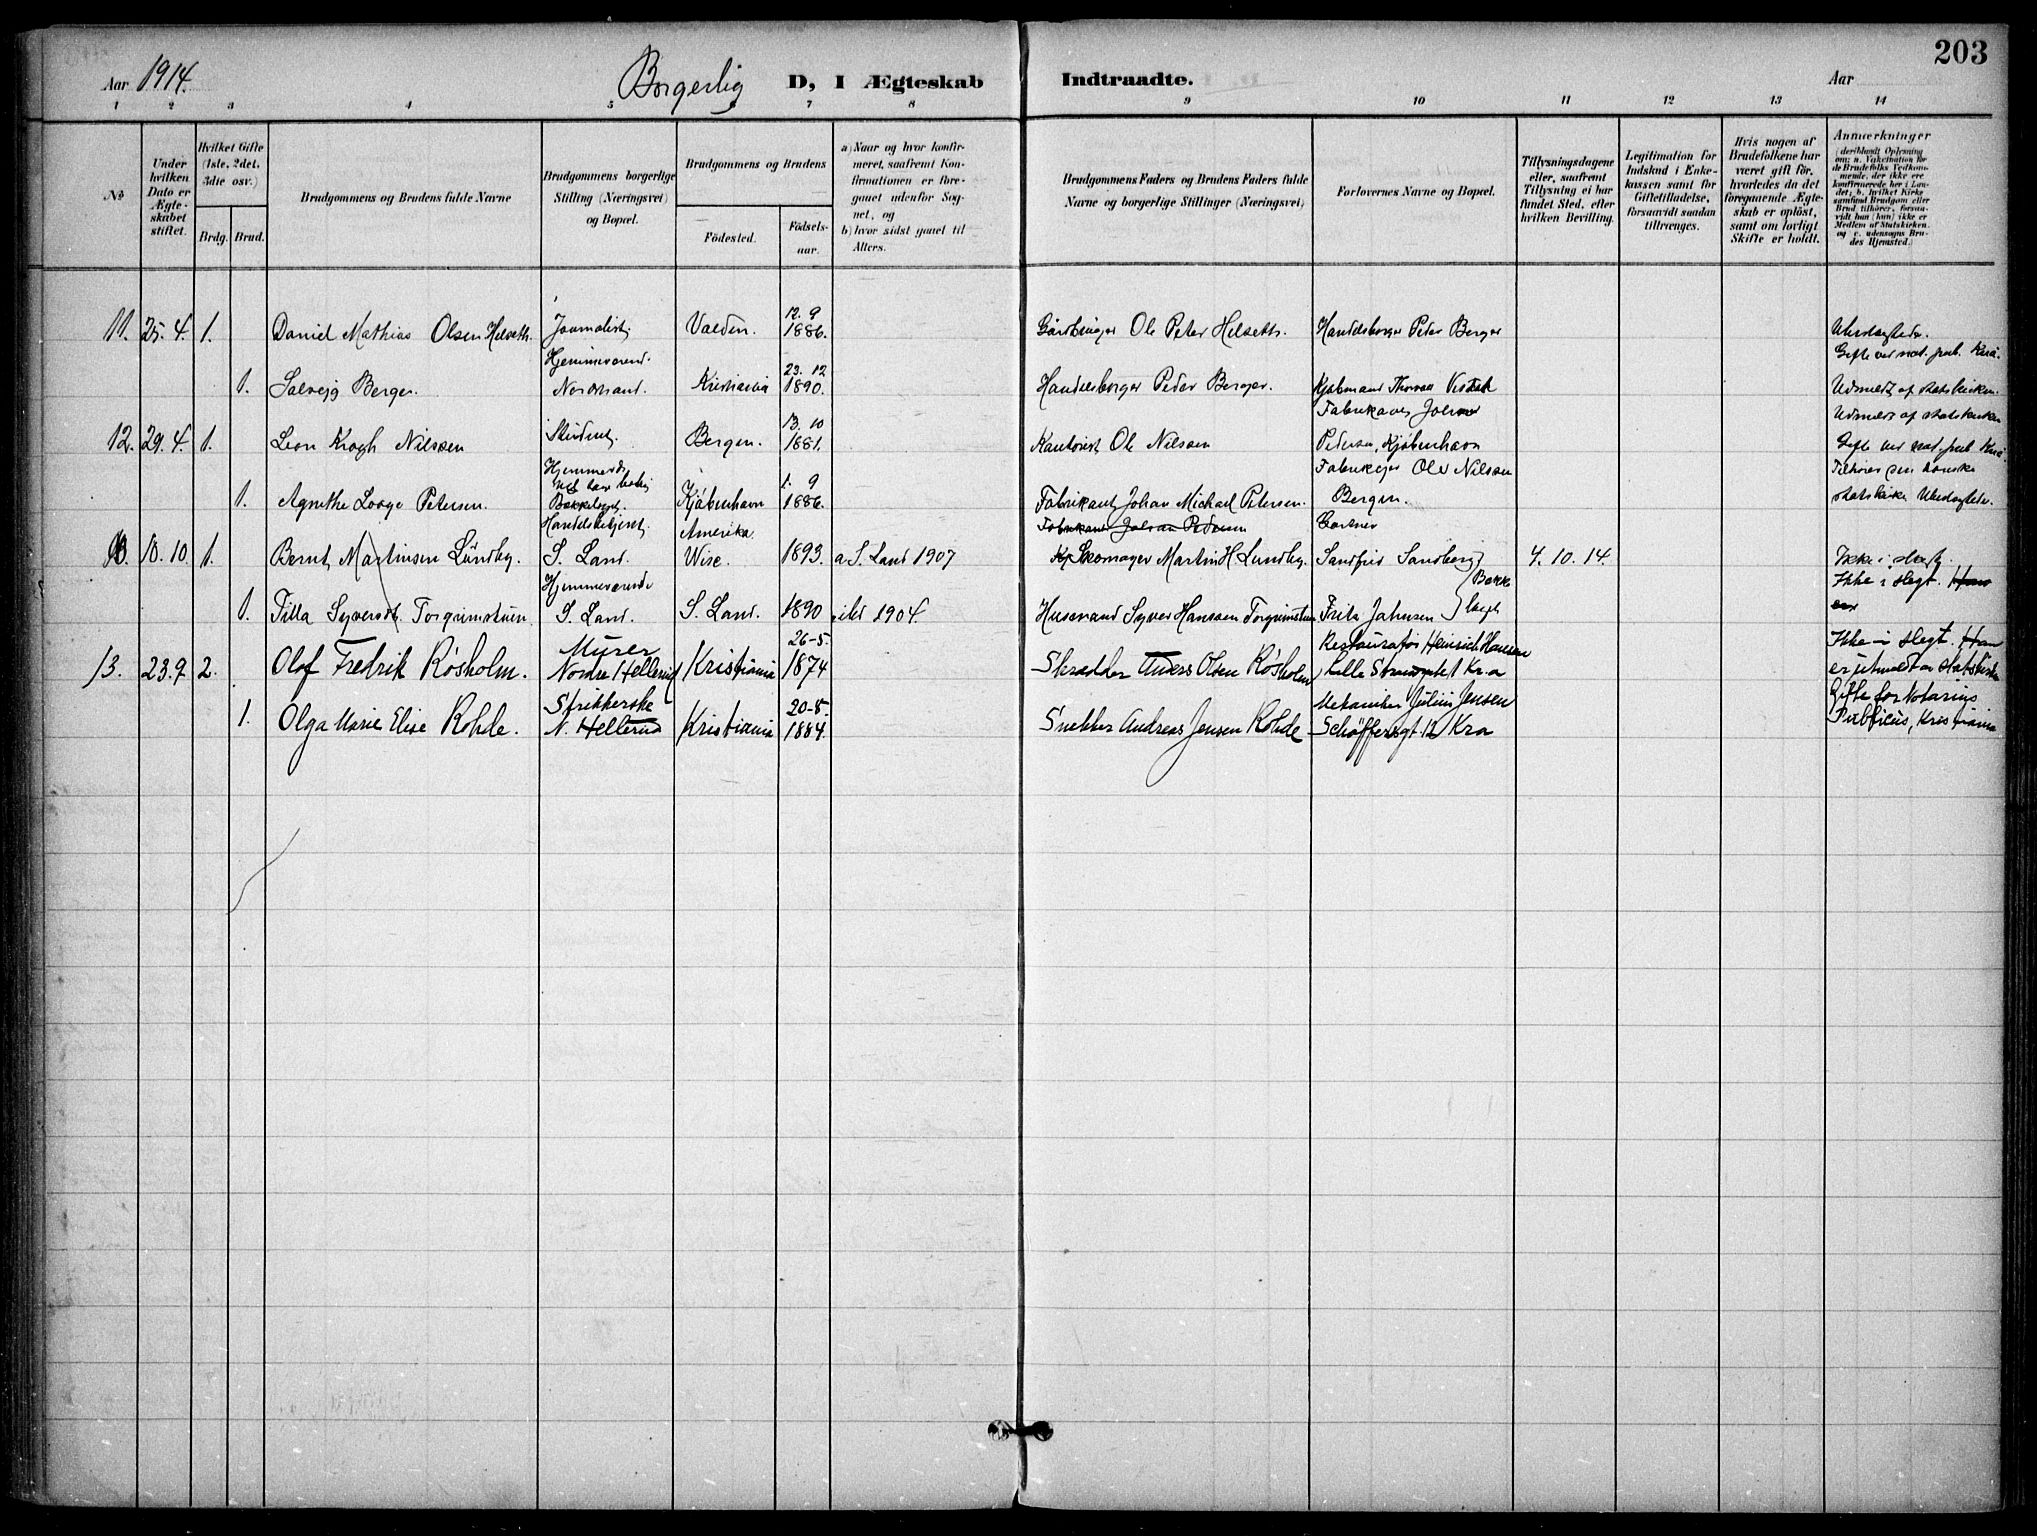 203
Aar 1914. Borgerlig D, I Ægteskab Indtraadte. Aar
1 2 3 4 5 6 7 8 9 10 11 12 13 14
№
Under hvilken Dato er Ægteskabet stiftet.
Hvilket Gifte (1ste, 2det, 3die osv.)
Brdg. Brud.
Brudgommens og Brudens fulde Navne
Brudgommens borgerlige Stilling (Næringsvei) og Bopæl.
Brudgommens og Brudens
Fødested. Fødselsaar.
a) Naar og hvor konfirmeret, saafremt Konfirmationen er foregaaet udenfor Sognet, og
b) hvor sidst gaaet til Alters.
Brudgommens Faders og Brudens Faders fulde Navne og borgerlige Stillinger (Næringsvei)
Forlovernes Navne og Bopæl.
Tillysningsdagene eller, saafremt Tillysning ei har fundet Sted, efter hvilken Bevilling.
Legitimation for Indskud i Enkekassen samt for Giftetilladelse, forsaavidt saadan tiltrænges.
Hvis nogen af Brudefolkene har været gift før, hvorledes da det foregaaende Ægteskab er opløst, samt om lovligt Skifte er holdt.
Anmærkninger
(deriblandt Oplysning om: a. Vakcination for de Brudefolks Vedkommende, der ikke ere konfirmerede her i Landet; b. hvilket Kirkesamfund Brudgom eller Brud tilhører, forsaavidt han (hun) ikke er Medlem af Statskirken, og c. udensogns Brudes Hjemsted.)
11. 25. 4. 1. Daniel Mathias Olsen Helseth. Journalist, 12. 9 1886. Gårdbruger Ole Peter Helseth. Handelsborger Peder Berger
Hjemmeværend.
1. Solveig Berger. Nordstrand. Kristiania 23. 12 1890. Handelsborger Peder Berger. Udmeldt af statskirken.
Udmeldt af statskirken
12. 29. 4. 1. Leon Krogh Nilssen Student, Bergen. 13. 10 1881. Kantorist Ole Nilsen Pedersen, Kjøbenhavn
1. Agnethe Petersen. Bekkelaget. Kjøbenhavn 1. 9 1886. Fabrikant Johan Michael Petersen. Bergen. statskirke
Handelsbetjent. Amerika. Fabrikant Johan Pedersen Gartner
13. 10. 10. 1. Bernt Martinsen Lundby. S. Land. Wise. 1893 a. S. Land 1907 Skomager Martin H. Lundby. Sandfrid Sandberg 4. 10. 14. Ikke i slegt.
Hjemmeværende Ikke i slegt. Han er
1. Tilla Syversdt. Torgrimstuen. S. Land. S. Land. 1890 1904 Husmand Syver Hanssen Torgrimstuen Frits Johnsen Bekkelaget
Murer 26-5. Restauratør Heinrich Hansen Ikke i slegt. Han
13. 23.9 2. Olof Fredrik Røsholm. Nordre Hellerud Kristiania 1874 Skrædder Anders Olsen Røsholm Lille Strandgade 1 Kr.a er utmeldt av statskirken
Strikkerske 20-5. Mekaniker Julius Jensen Gifte for Notarius
1. Olga Marie Elise Rohde. N. Hellerud Kristiania 1884. Snekker Andreas Jensen Rohde Kra Publicus, Kristiania